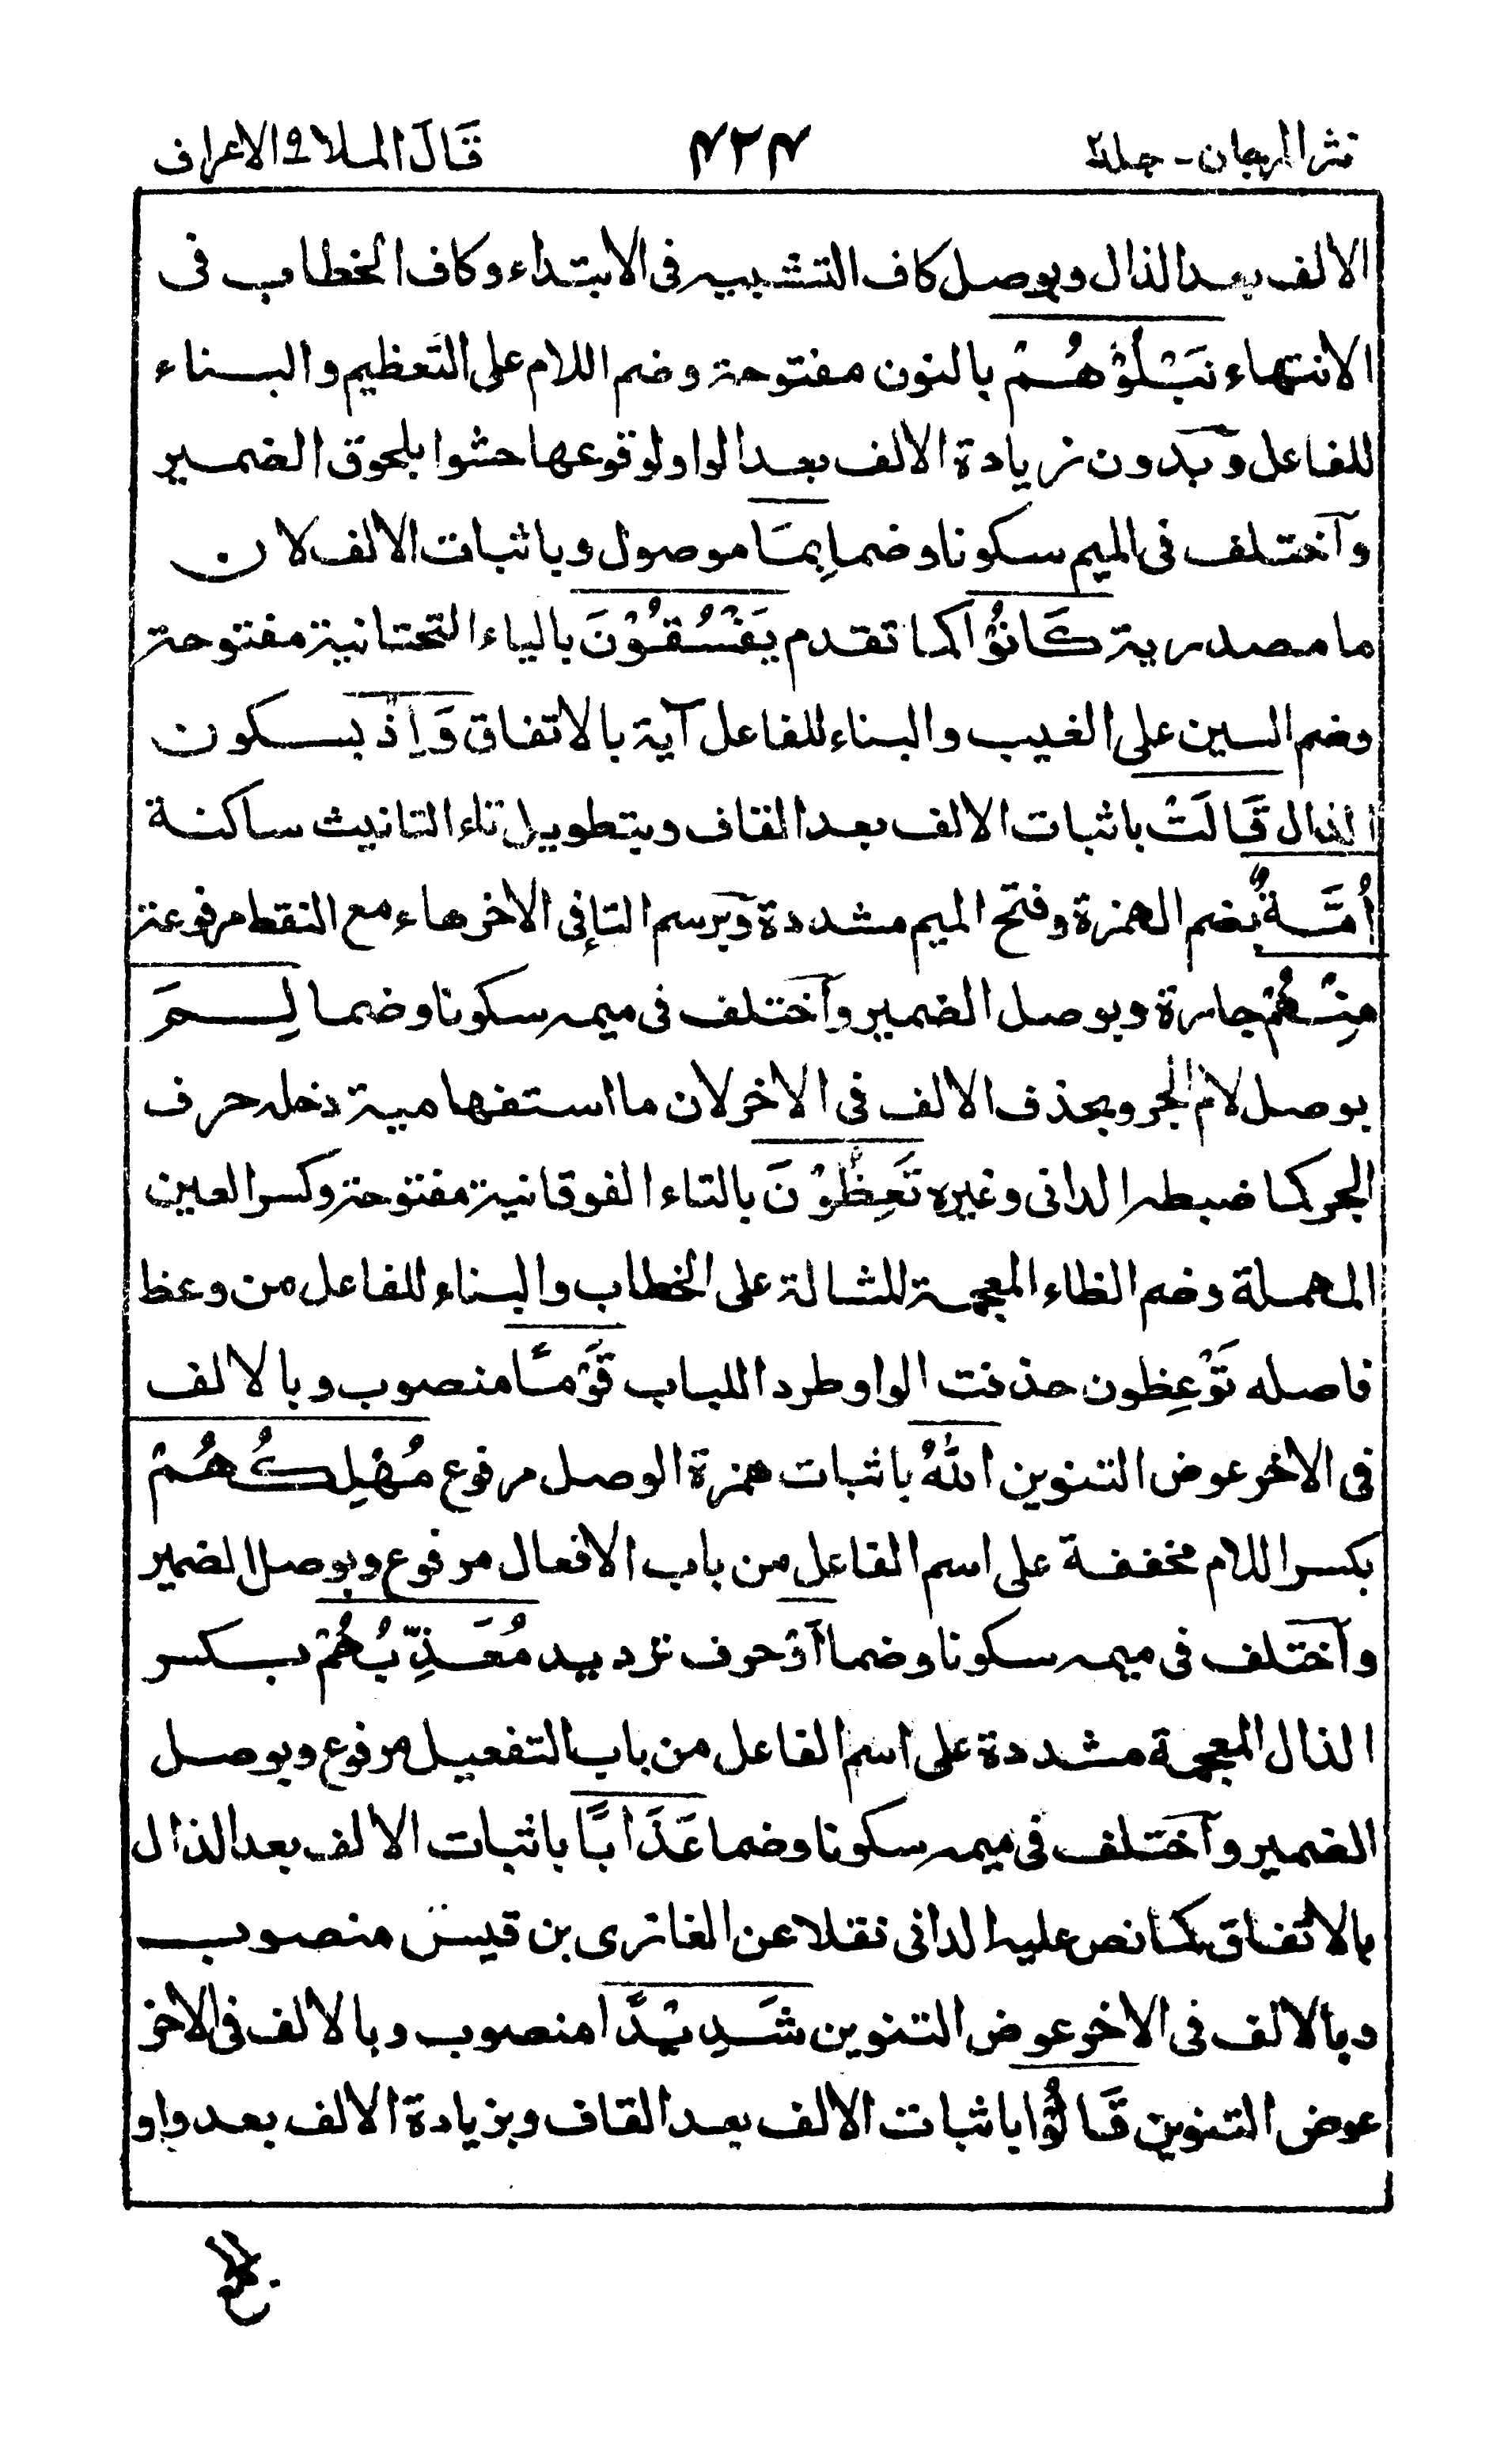 نثر المرجان - جلد۲
۴۲۴
قَالَ الملا ٩ الاعراف
الالف بعد الذال وبوصل كاف التشبيه فى الابتداء وكاف الخطاب فى
الانتهاء نَبْلُوْهُمْ بالنون مفتوحة وضم اللام على التعظيم والبناء
للفاعل وبدون زيادة الالف بعد الواو لوقوعها حشوا بلحوق الضمير
وآختلف فى الميم سكونا وضما بِمَا موصول وباثبات الالف لان
ما مصدرية كَانُوْا كما تقدم يَفْسُقُوْنَ بالياء التحتانية مفتوحة
وضم السين على الغيب والبناء للفاعل آية بالاتفاق وَاِذْ بسكون
الذال قَالَتْ باثبات الالف بعد القاف وبتطويل تاء التانيث ساكنة
اُمَّةٌ بضم الهمزة وفتح الميم مشددة وبرسم التا فى الاخر هاء مع النقط مرفوعة
مِنْهُمْ جارة وبوصل الضمير وآختلف فى ميمه سكونا وضما لِمَ
بوصل لام الجر وبحذف الالف فى الاخر لان ما استفهامية دخله حرف
الجر كما ضبطه الدانى وغيره تَعِظُوْنَ بالتاء الفوقانية مفتوحة وكسر العين
المهملة وضم الظاء المعجمة المشالة على الخطاب والبناء للفاعل من وعظ
فاصله تَوْعِظون حذفت الواو طرد اللباب قَوْمًا منصوب وبالالف
فى الاخر عوض التنوين اللهُ باثبات همزة الوصل مرفوع مُهْلِكُهُمْ
بكسر اللام مخففة على اسم الفاعل من باب الافعال مرفوع وبوصل الضمير
وآختلف فى ميمه سكونا وضما اَوْ حرف ترديد مُعَذِّبُهُمْ بكسر
الذال المعجمة مشددة على اسم الفاعل من باب التفعيل مرفوع وبوصل
الضمير وآختلف فى ميمه سكونا وضما عَذَابًا باثبات الالف بعد الذال
بالاتفاق كما نص عليه الدانى نقلا عن الغازى بن قيس منصوب
وبالالف فى الاخر عوض التنوين شَدِيْدًا منصوب وبالالف فى الاخر
عوض التنوين قَالُوْا باثبات الالف بعد القاف وبزيادة الالف بعد واو